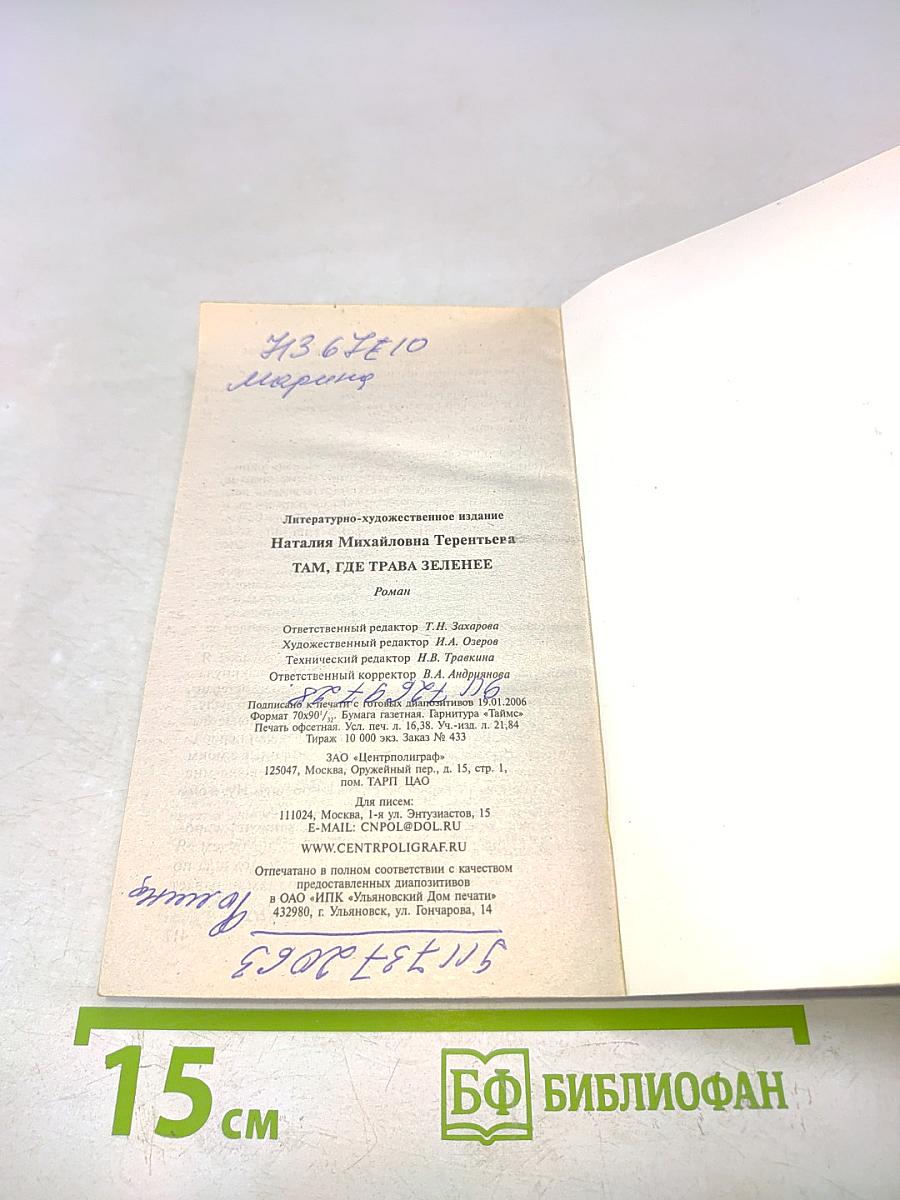 Марина
Литературно-художественное издание
Наталия Михайловна Терентьева
ТАМ, ГДЕ ТРАВА ЗЕЛЕНЕЕ
Роман
Ответственный редактор Т.Н. Захарова
Художественный редактор И.А. Озеров
Технический редактор Н.В. Травкина
Ответственный корректор В.А. Андриянова
911 726 97 28
Подписано к печати с готовых диапозитивов 19.01.2006
Формат 70х90 1/32. Бумага газетная. Гарнитура «Таймс»
Печать офсетная. Усл. печ. л. 16,38. Уч.-изд. л. 21,84
Тираж 10 000 экз. Заказ № 433
ЗАО «Центрполиграф»
125047, Москва, Оружейный пер., д. 15, стр. 1,
пом. ТАРП ЦАО
Для писем:
111024, Москва, 1-я ул. Энтузиастов, 15
E-MAIL: CNPOL@DOL.RU
WWW.CENTRPOLIGRAF.RU
Отпечатано в полном соответствии с качеством
предоставленных диапозитивов
в ОАО «ИПК «Ульяновский Дом печати»
432980, г. Ульяновск, ул. Гончарова, 14
911 737 2063
15 см
БФ БИБЛИОФАН